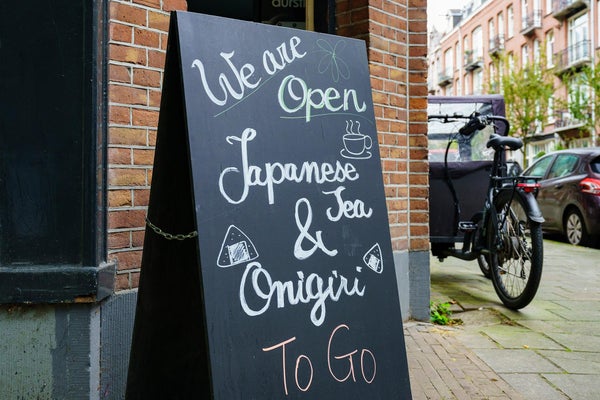 We are
Open
Japanese
Tea
&
Onigiri
To Go